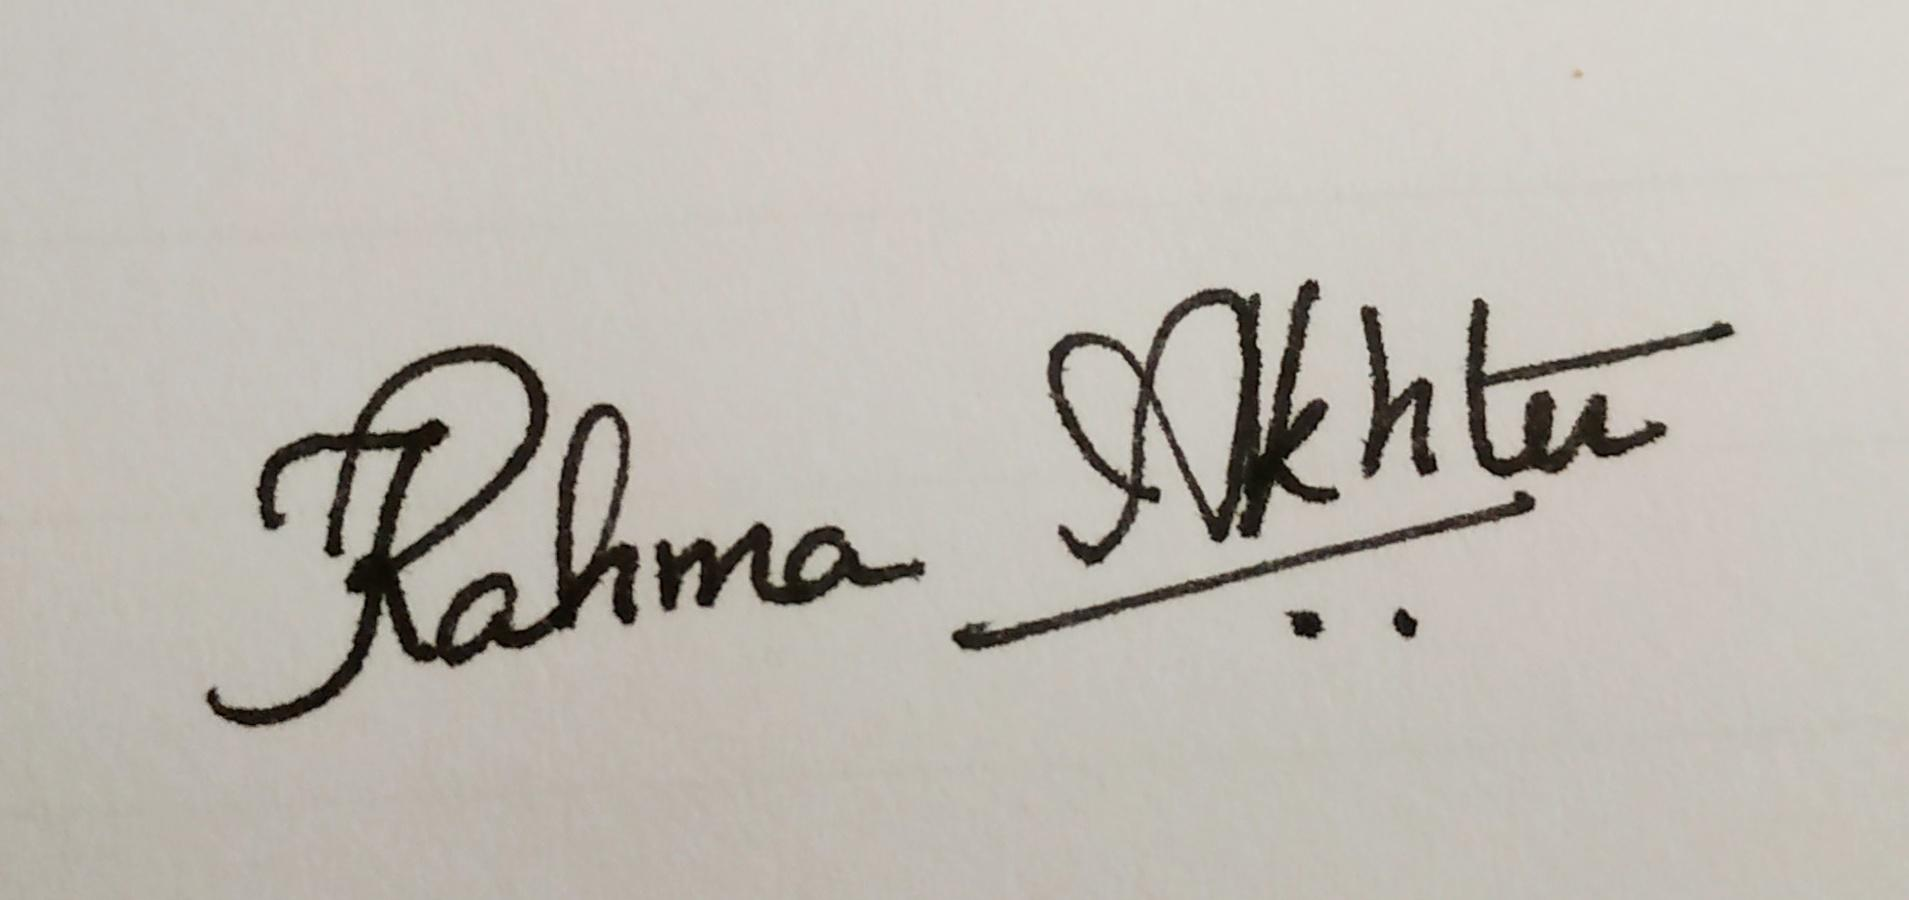 Rahma Akhter